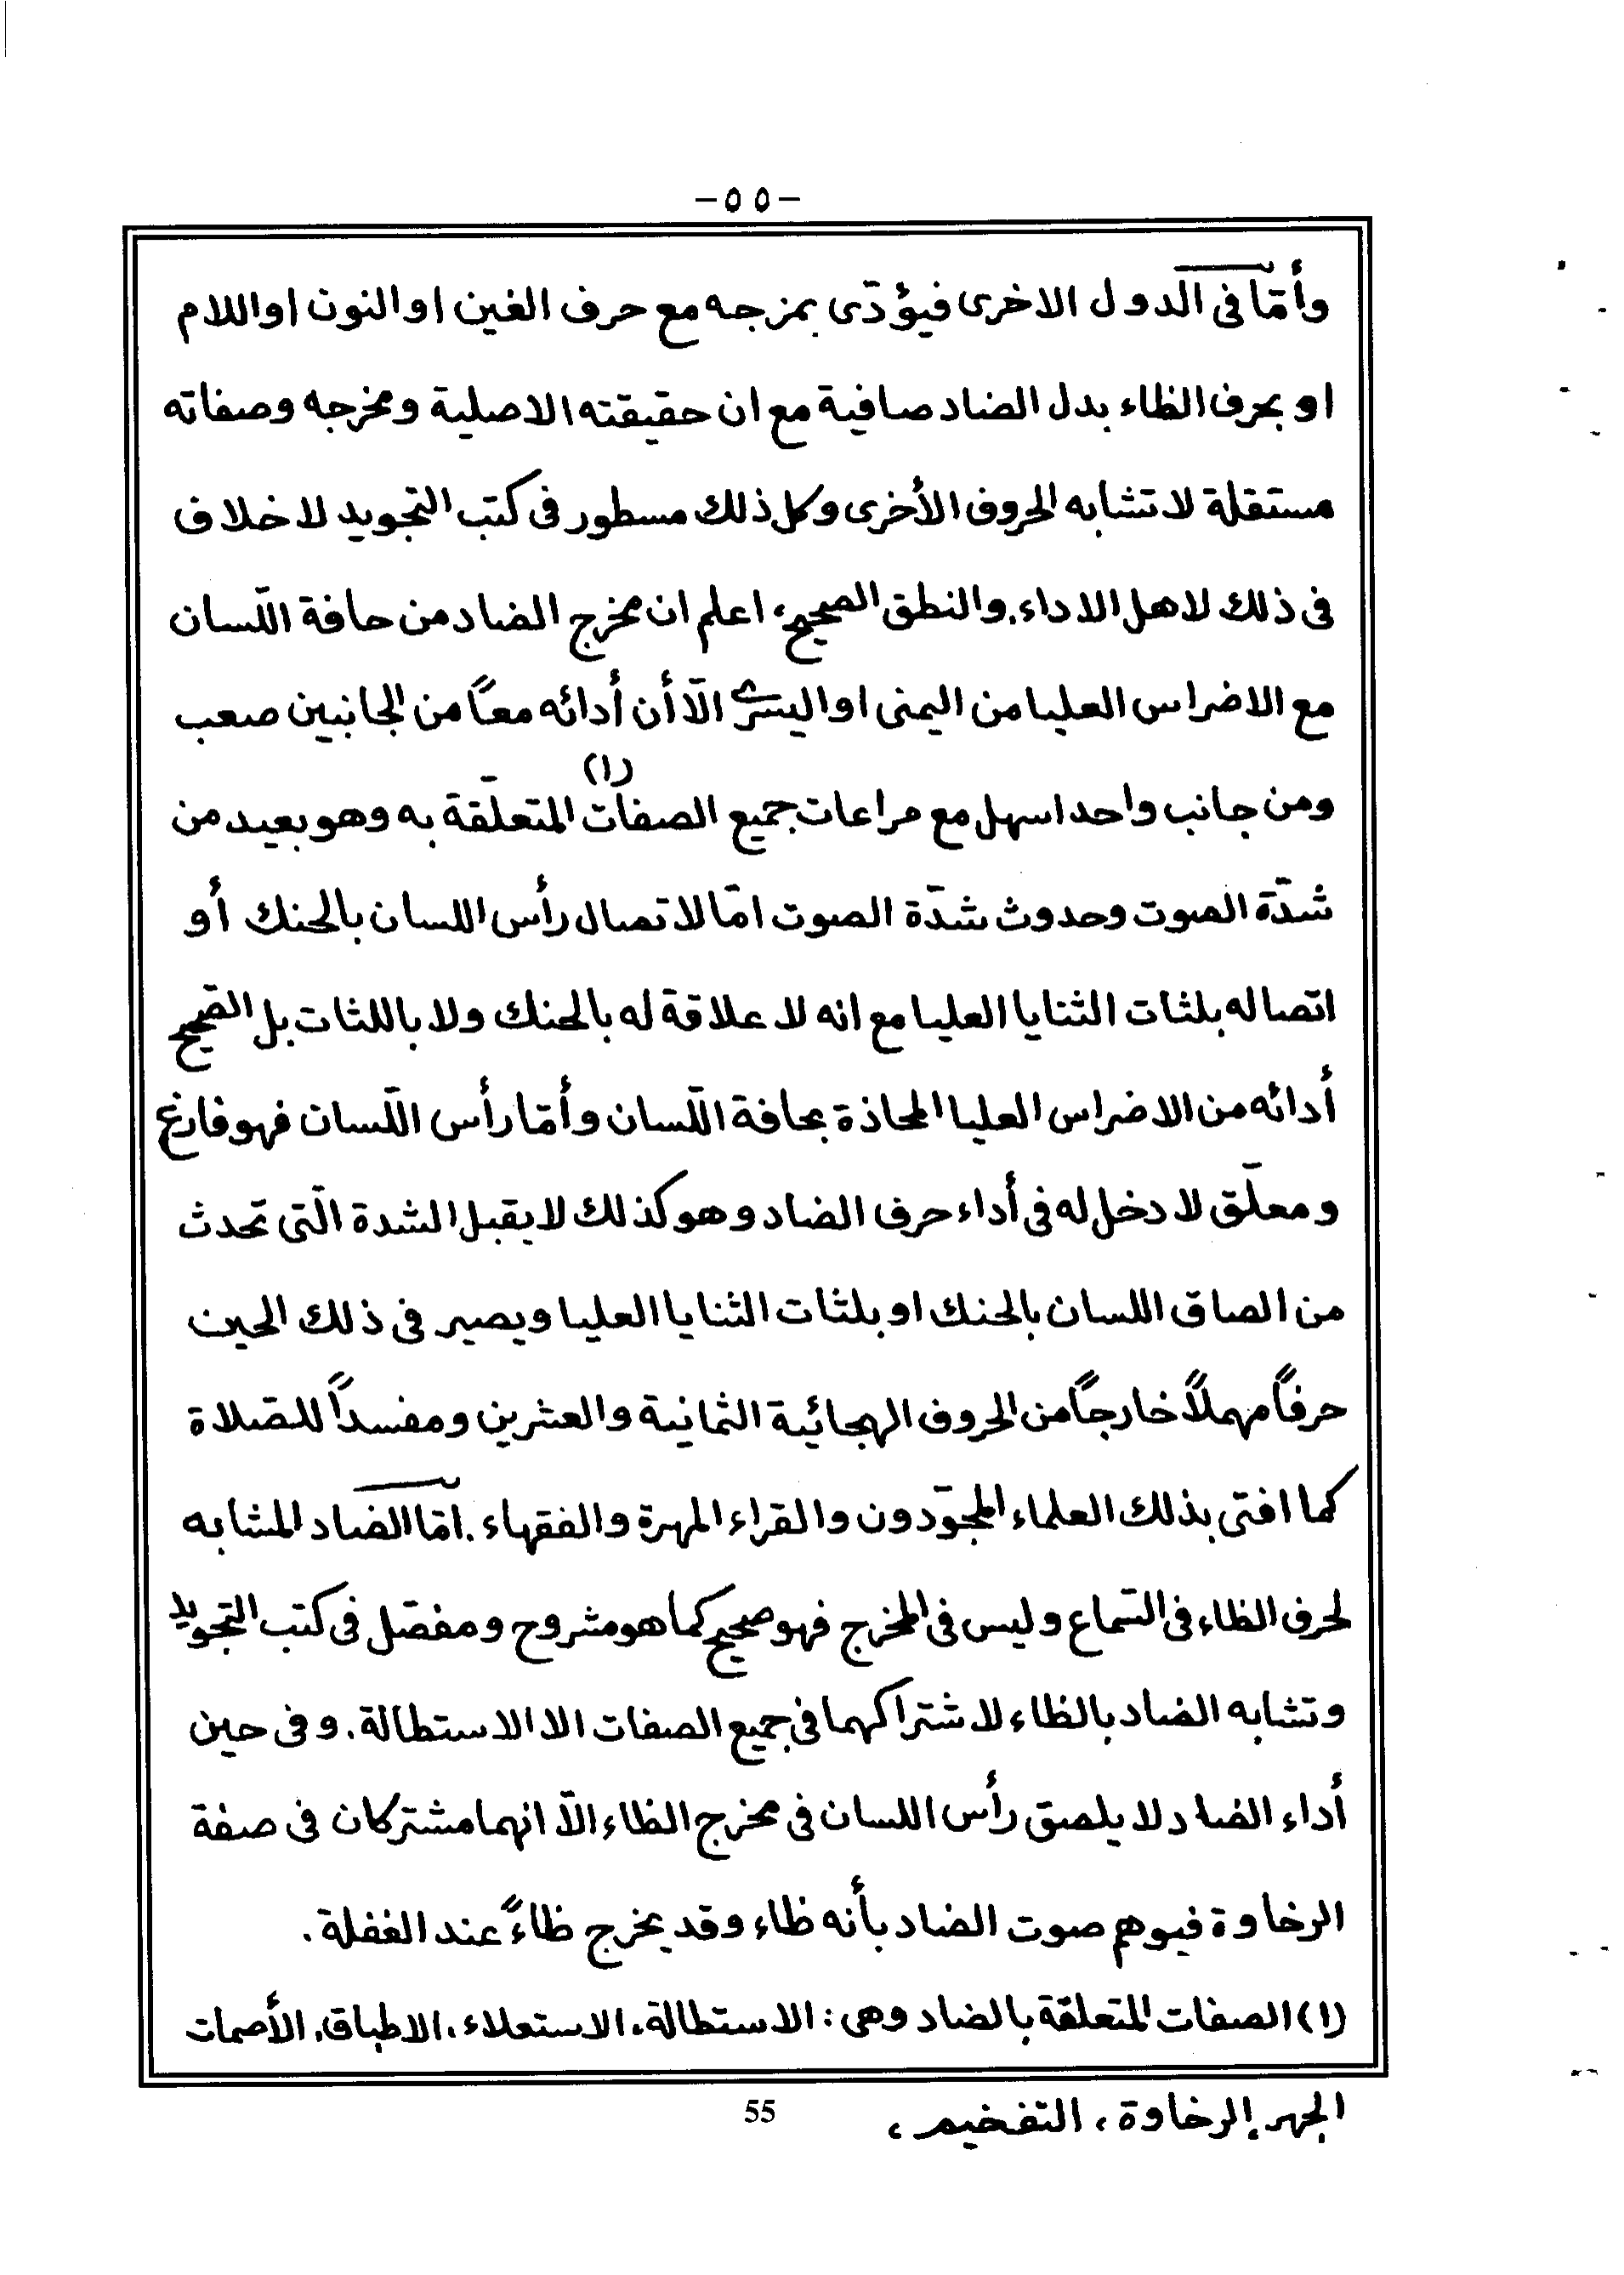 -٥٥-
وأمّا فى الدول الاخرى فيؤدّى بمزجه مع حرف الغين او النون او اللام
او بحرف الظاء بدل الضاد صافية مع ان حقيقته الاصلية ومخرجه وصفاته
مستقلة لا تشابه الحروف الأخرى وكل ذلك مسطور فى كتب التجويد لا خلاف
فى ذلك لاهل الاداء. والنطق الصحيح، اعلم ان مخرج الضاد من حافة اللّسان
مع الاضراس العليا من اليمنى او اليسرى الّا أن أدائه معاً من الجانبين صعب
ومن جانب واحد اسهل مع مراعات جميع الصفات (١) المتعلّقة به وهو بعيد من
شدّة الصوت وحدوث شدّة الصوت امّا لاتصال رأس اللسان بالحنك أو
اتصاله بلثات الثنايا العليا مع انه لا علاقة له بالحنك ولا باللثات بل الصّحيح
أدائه من الاضراس العليا المحاذة بحافة اللّسان وأمّا رأس اللّسان فهو فارغ
ومعلّق لا دخل له فى أداء حرف الضاد وهو كذلك لا يقبل الشدة الّتى تحدث
من الصاق اللسان بالحنك او بلثات الثنايا العليا ويصير فى ذلك الحين
حرفاً مهملاً خارجاً من الحروف الهجائية الثمانية والعشرين ومفسداً للصّلاة
كما افتى بذلك العلماء المجوّدون والقراء المهرة والفقهاء. امّا الضاد المشابه
لحرف الظاء فى السّماع وليس فى المخرج فهو صحيح كما هو مشروح ومفصّل فى كتب التجويد
وتشابه الضاد بالظاء لاشتراكهما فى جميع الصفات الا الاستطالة. وفى حين
أداء الضاد لا يلصق رأس اللسان فى مخرج الظاء الّا انهما مشتركان فى صفة
الرخاوة فيوهم صوت الضاد بأنه ظاء وقد يخرج ظاءً عند الغفلة.
(١) الصفات المتعلقة بالضاد وهى: الاستطالة، الاستعلاء، الاطباق، الأصمات
الجهر، الرخاوة، التفخيم،
55